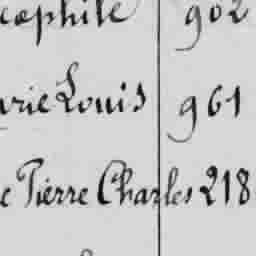 cophile 902
urie Louis 961
e Pierre Charles 218